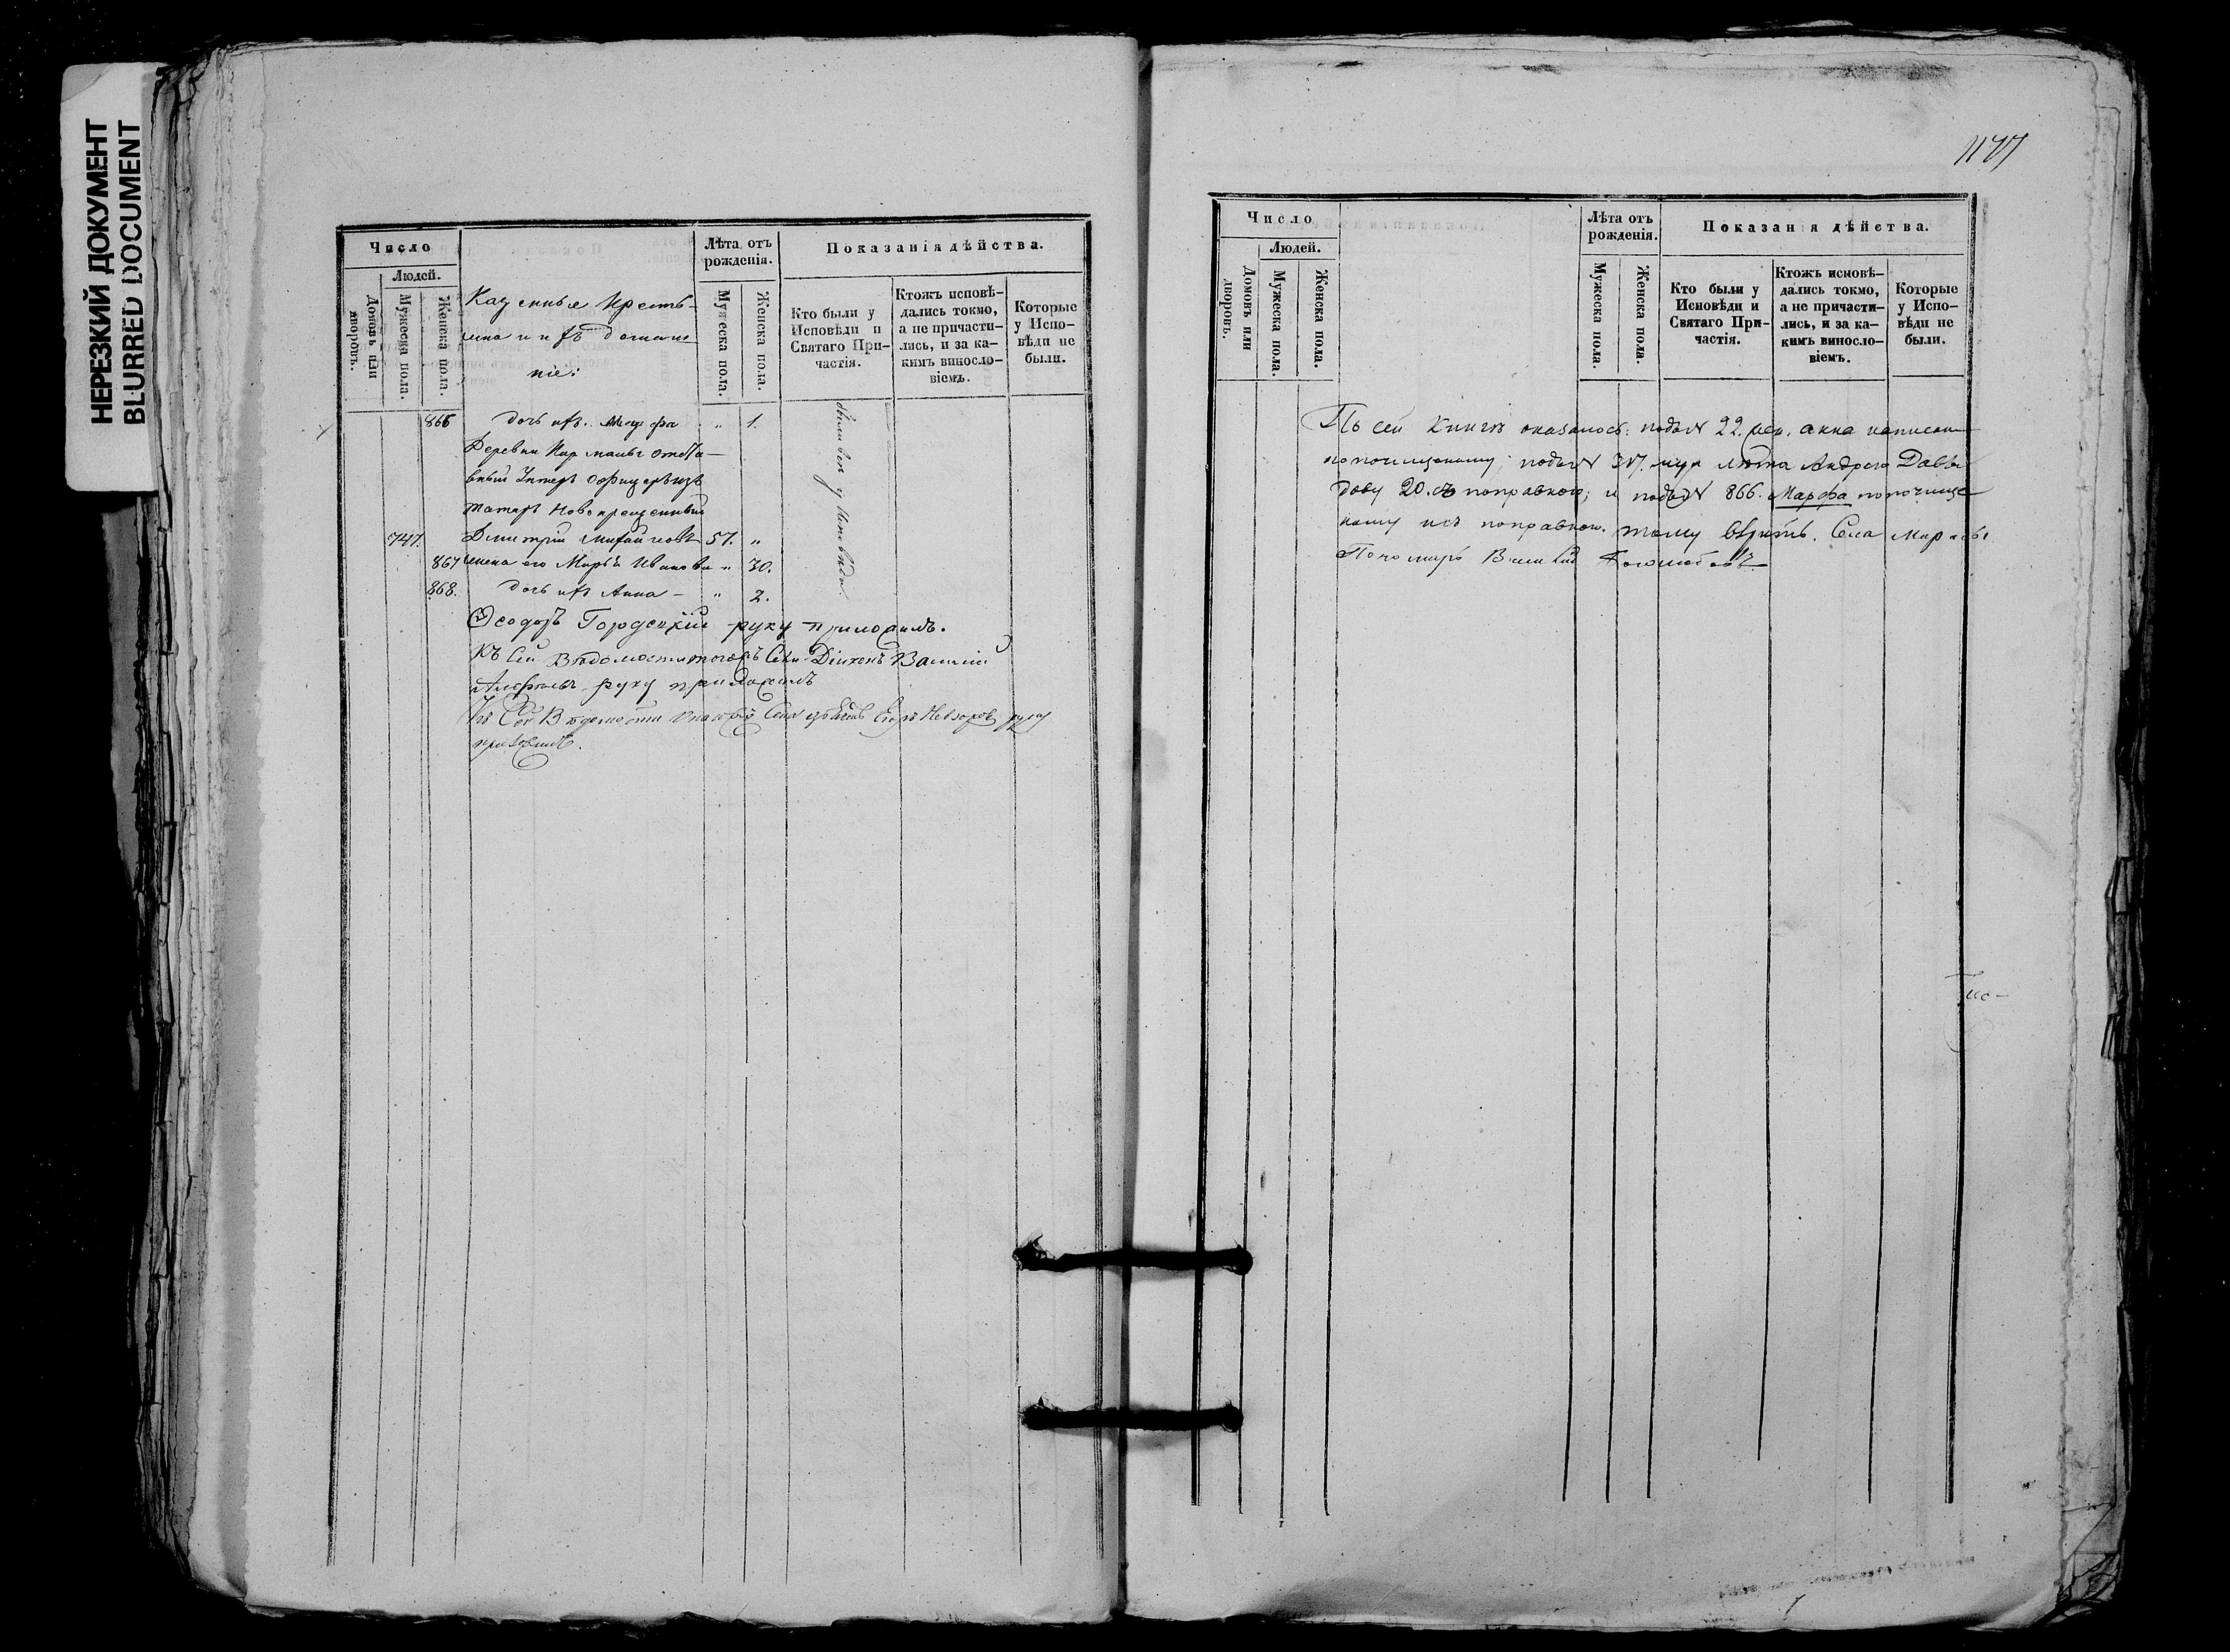 НЕРЕЗКИЙ ДОКУМЕНТ
BLURRED DOCUMENT
Число
Людей.
Домовъ или дворовъ.
Мужеска пола.
Женска пола.
Казенные Кресть-
яне и ихъ домаш
ніе:
Лѣта отъ рожденія.
Мужеска пола.
Женска пола.
Показанія дѣйства.
Кто были у Исповѣди и Святаго При-частія.
Ктожъ исповѣ-дались токмо, а не причасти-лись, и за ка-кимъ винословіемъ.
Которые у Испо-вѣди не были.
866 дочь ихъ Марфа " 1.
Деревни отста-
вный Унтеръ Офицеръ изъ
татаръ Новокрещенный
747. Дмитрій Михайловъ 57. "
867 жена его Марья Иванова " 30.
868. дочь ихъ Анна - " 2.
у Исповѣди
Ѳеодоръ руку приложилъ.
Къ сей Вѣдомости тогожъ Села Діаконъ Василій
руку приложилъ
Къ Сей Вѣдомости Села Егоръ Невзоровъ руку
приложилъ.
1177
Число
Людей.
Домовъ или дворовъ.
Мужеска пола.
Женска пола.
Лѣта отъ рожденія.
Мужеска пола.
Женска пола.
Показанія дѣйства.
Кто были у Исповѣди и Святаго При-частія.
Ктожъ исповѣ-дались токмо, а не причасти-лись, и за ка-кимъ винословіемъ.
Которые у Испо-вѣди не были.
По сей Книгѣ оказалось: подъ N 22. жен. анна написан
по почищеному; подъ N муж лѣта Андрею Давы
дову 20. съ поправкою; и подъ N 866. Марфа по почище
ному и съ поправкою. тому вѣрить. Села
Пономарь Василій Боголюбовъ